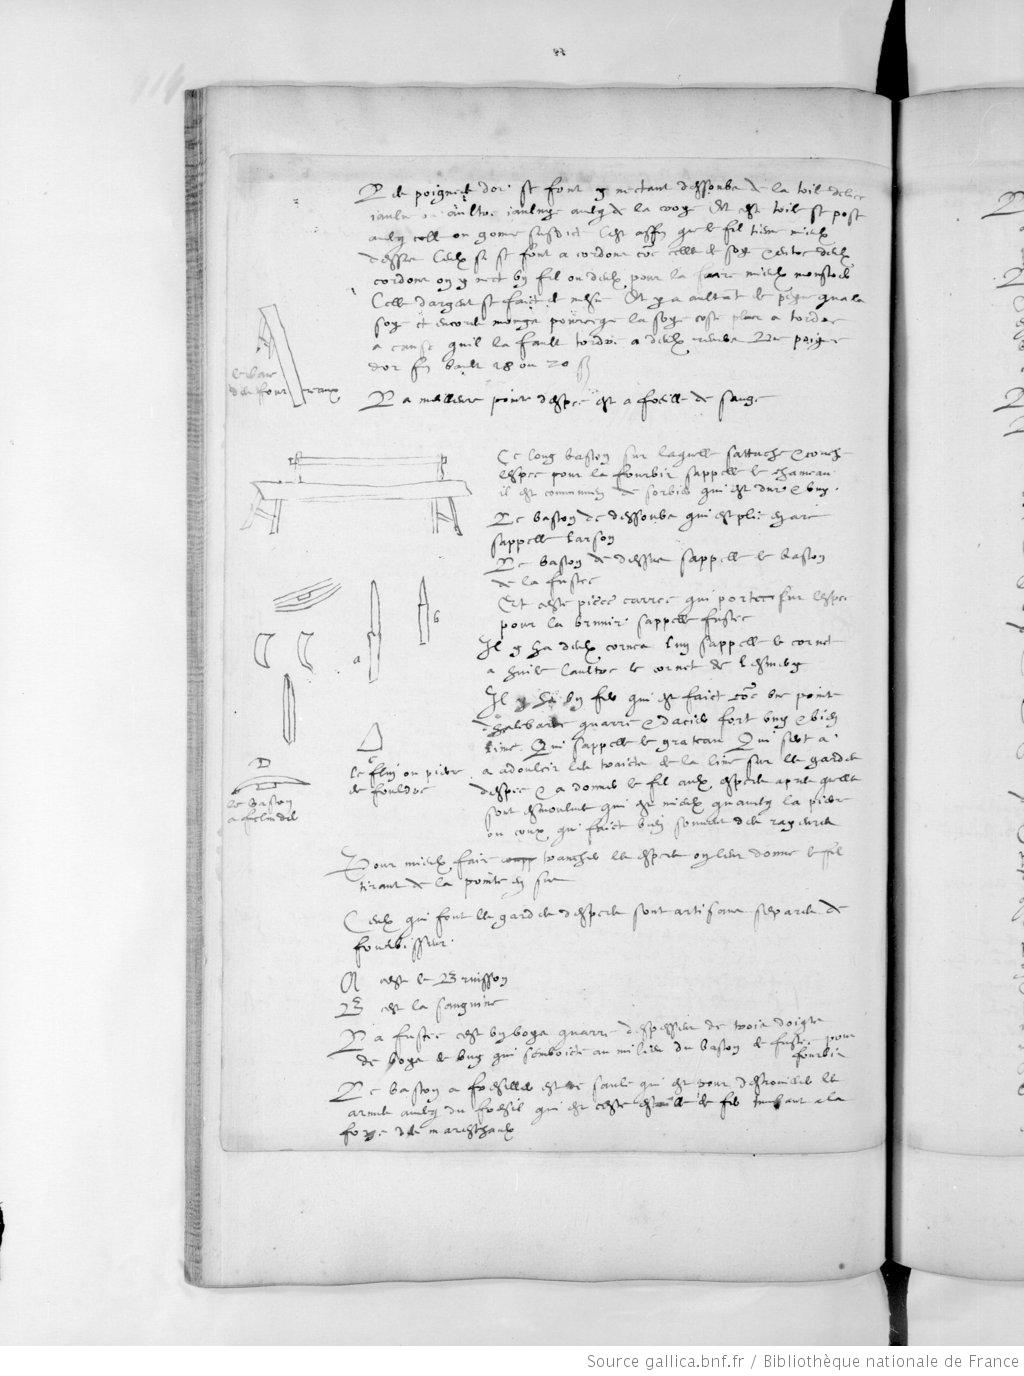 Les poignees dor se font y mectant dessoubs de la toile deliee
jaulne ou aultre jaulnye avecq de la croye Et est toile se pose
avecq colle ou gome susdict Cest affin que le fil tiene mieulx
dessus Ceulx cy se font a cordons co{mm}e celle de soye Entre deulx
cordons on y mect un fil ou deulx pour la faire mieulx monstrer
Celle dargent se faict de mesme Et y a aultant de peine qua la
soye et encores moings pource que la soye coste plus a tordre
a cause quil la fault tordre a deulx Une poignee
dor fin vault 18 ou 20 ſ
La meilleure poincte despee est a foeille de sauge
le banc
des four
reaux
Ce long baston sur laquelle sattache & couche
lespee pour la fourbir sappelle le chameau
il est communem{ent} de sorbier qui est dur & uny
Le baston de dessoubs qui est plie en arc
sappelle larson
Le baston de dessus sappelle le baston
de la fustee
Et ceste piece carree qui porte sur lespee
pour la brunir sappelle fustee
Il y ha deulx cornes lun sappelle le cornet
a huile laultre le cornet de lesmery
a
b
Il y ha un fer qui est faict co{mm}e une poincte
dhalebarde quarre & dacier fort uny & bien
lime Qui sappelle le grateau Qui sert a
a adoulcir les traicts de la lime sur les gardes
despee & a donner le fil aulx espees apres quelles
sont esmoulues qui est mieulx quavecq la pierre
ou coux qui faict bien souvent des rayeures
c
le fling ou pierre
de fouldre
D
le baston
a foeilles
Pour mieulx faire trancher les espees on leur donne le fil
tirant de la poincte en sus
Ceulx qui font les gardes despees sont artisans separes de
fourbisseurs
A cest le Brunisson
B cest la sanguine
La fustee est un boys quarre despesseur de trois doigts
de boys de buy qui semboicte au milieu du baston de fustee pour
fourbir
Le baston a foeilles est de saule qui est pour desrouiller les
armes avecq du foesil qui est ceste escaille de fer tumbant a la
forge des mareschaulx
Source gallica.bnf.fr / Bibliothèque nationale de France